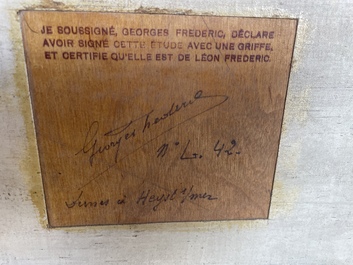 JE SOUSSIGNÉ, GEORGES FREDERIC, DÉCLARE
AVOIR SIGNÉ CETTE ÉTUDE AVEC UNE GRIFFE,
ET CERTIFIE QU'ELLE EST DE LÉON FREDERIC.
Georges Frederic
N° L. 42.
à Heyst s/mer